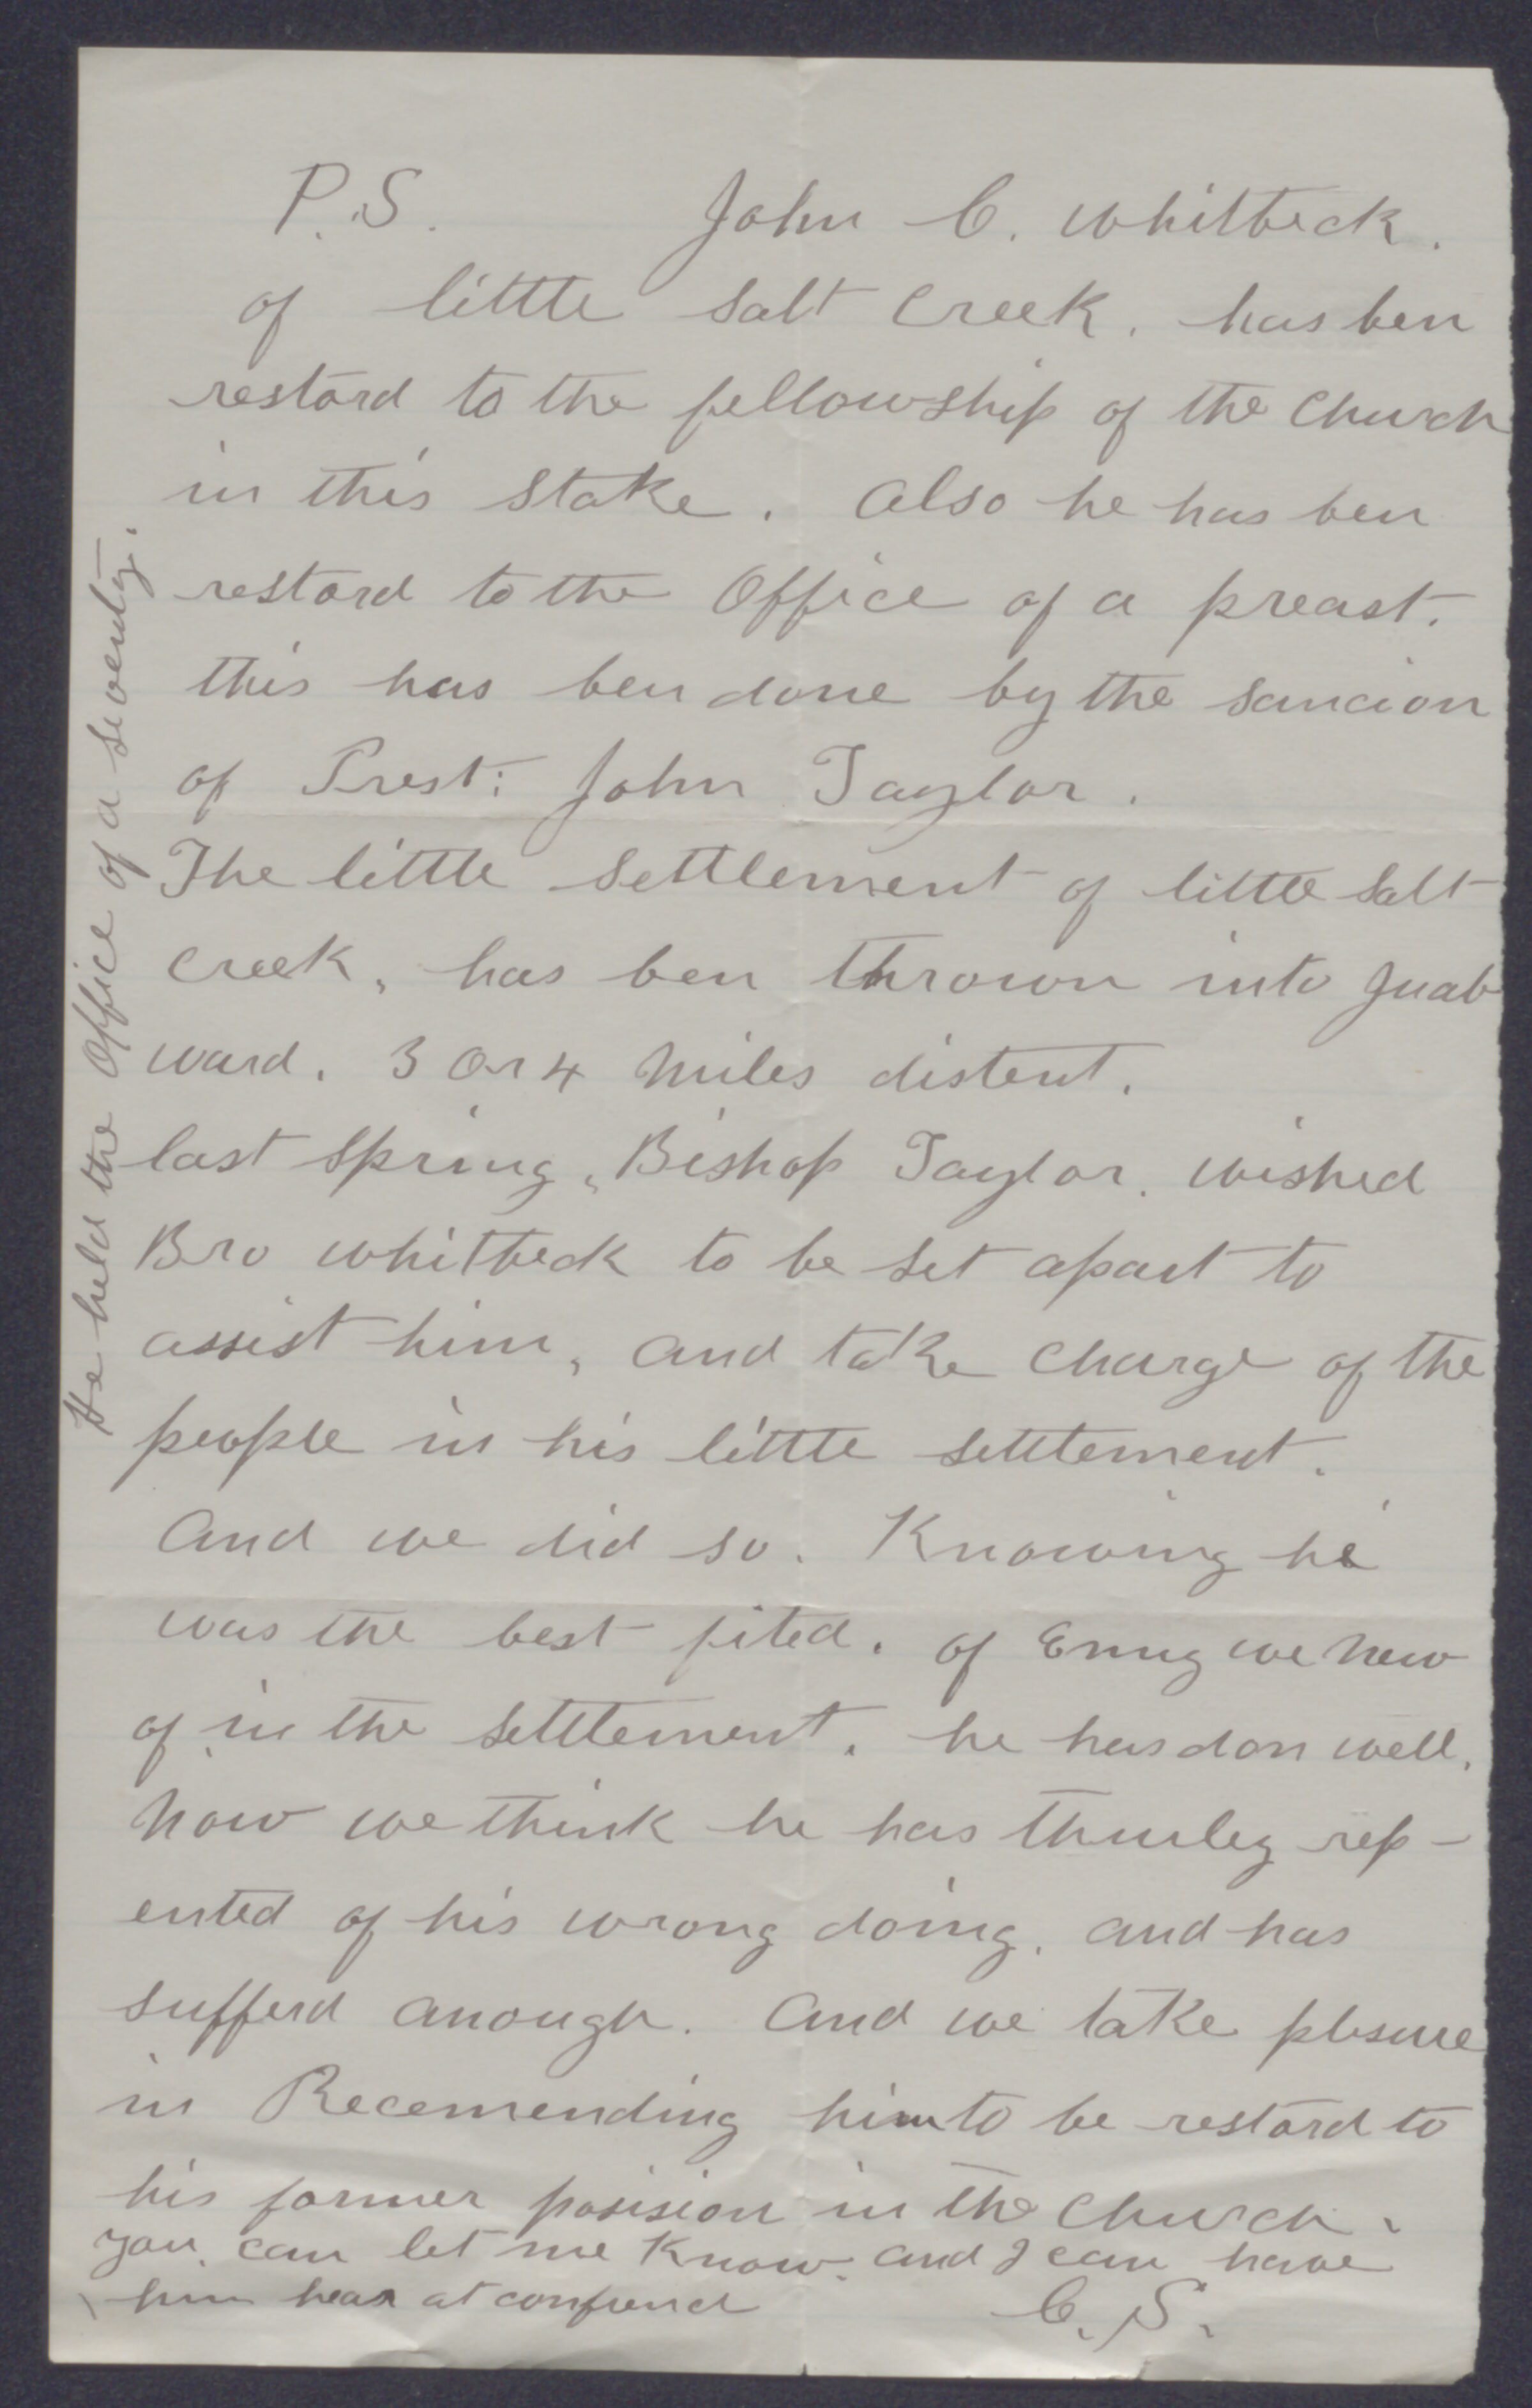 P.S. John C. whitbeck.
of little Salt Creek. has ben
restord to the fellowship of the Church
in this Stake. Also he has ben
restord to the Office of a preast.
this has ben done by the sancion
of Prest: John Taylor.
The little settlement of little Salt
Creek, has ben thrown into Juab
ward. 3 Or 4 Miles distent.
last Spring, Bishop Taylor. wished
Bro whitbeck to be set apart to
assist him, and take charge of the
people in his little settlement.
And we did so. Knowing he
was the best fited. of Enny we New
of in the settlement. he has don well.
Now we think he has thurley rep-
ented of his wrong doing. and has
sufferd anough. And we take plesure
in Recemending him to be restord to
his former posision in the Church.
you can let me Know. and I can have
him hear at
C. S.
He held the Office of a seventy.